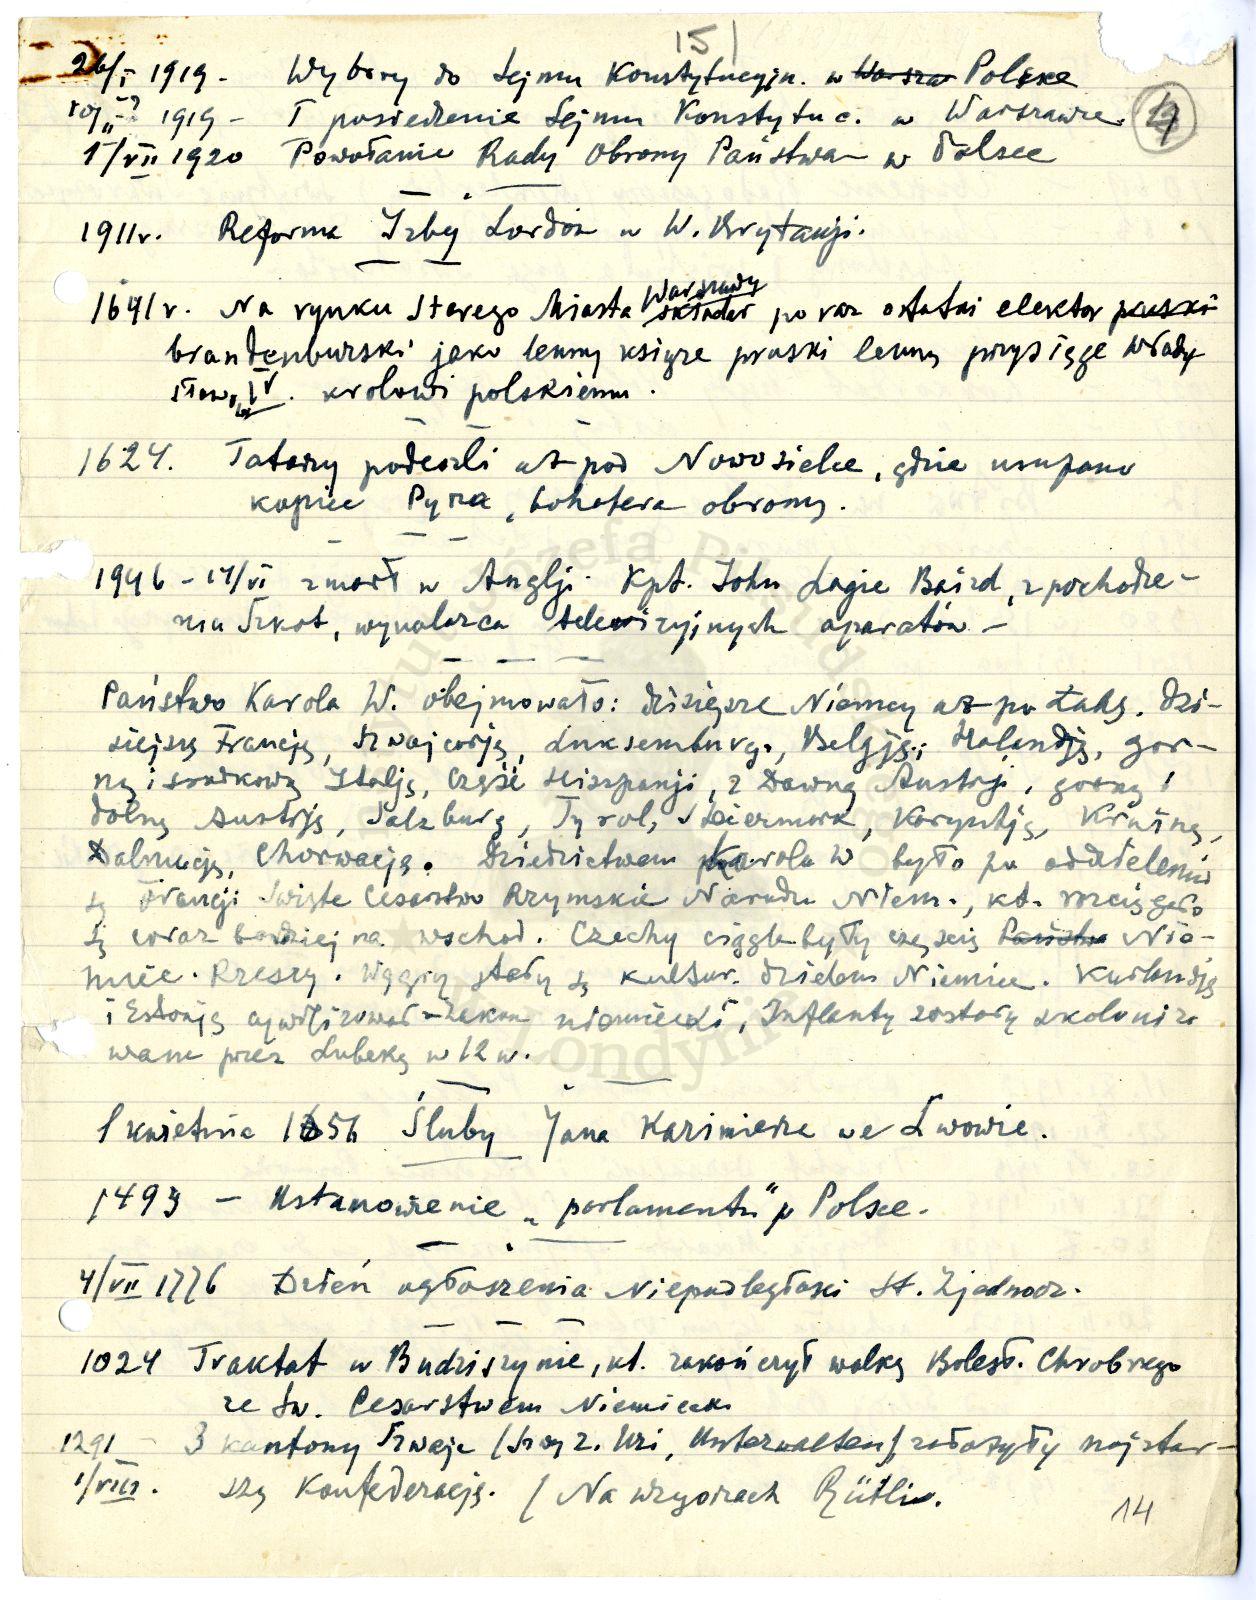 15)
26/I 1919 - Wybory do Sejmu Konstytucyjn. w Warsza Polsce
10/II 1919 - I posiedzenie Sejmu Konstytuc. w Warszawie. 4
1/VII 1920 Powołanie Rady Obrony Państwa w Polsce
1911r. Reforma Izby Lordów w W. Brytanji.
1641r. Na rynku Starego Miasta Warszawy składał po raz ostatni elektor pruski
brandenburski jako lenny książę pruski lenną przysięgę Włady
sławowi IV. królowi polskiemu.
1624. Tatarzy podeszli aż pod Nowosielce, gdzie usypano
kopiec Pyrza, bohatera obrony.
1946 - 14/VI zmarł w Anglji Kpt. John Logie Baird, z pochodze-
nia Szkot, wynalazca telewizyjnych aparatów -
Państwo Karola W. obejmowało: dzisiejsze Niemcy aż po Łabę. Dzi-
siejszą Francję, Szwajcarję, Luksemburg, Belgję, Holandję, gór-
ną i środkową Italję, część Hiszpanji, z Dawnej Austrji, górną i
dolną Austrję, Salzburg, Tyrol, Steiermark, Karyntję, Krainę,
Dalmację, Chorwację. Dziedzictwem Karola W było po oddzieleniu
się Francji Święte Cesarstwo Rzymskie Narodu Niem., kt. rozciągało
się coraz bardziej na wschód. Czechy ciągle były częścią Państwa Nie-
miec. Rzeszy. Węgry stały się kultur. dziełem Niemiec. Kurlandję
i Estonję cywilizował Zakon niemiecki, Inflanty zostały skolonizo
wane przez Lubekę w 12 w.
1 kwietnia 1656 Śluby Jana Kazimierza we Lwowie.
1493 - Ustanowienie „parlamentu" w Polsce.
4/VII 1776 Dzień ogłoszenia Niepodległości St. Zjednocz.
1024 Traktat w Budziszynie, kt. zakończył walkę Bolesł. Chrobrego
ze Św. Cesarstwem Niemieck
1291 - 3 kantony Szwajc (Szwyz. Uri, Unterwalten) założyły najstar-
1/VIII. szą Konfederację. (Na wzgórzach Rütli.
14
Instytut Józefa Piłsudskiego w Londynie